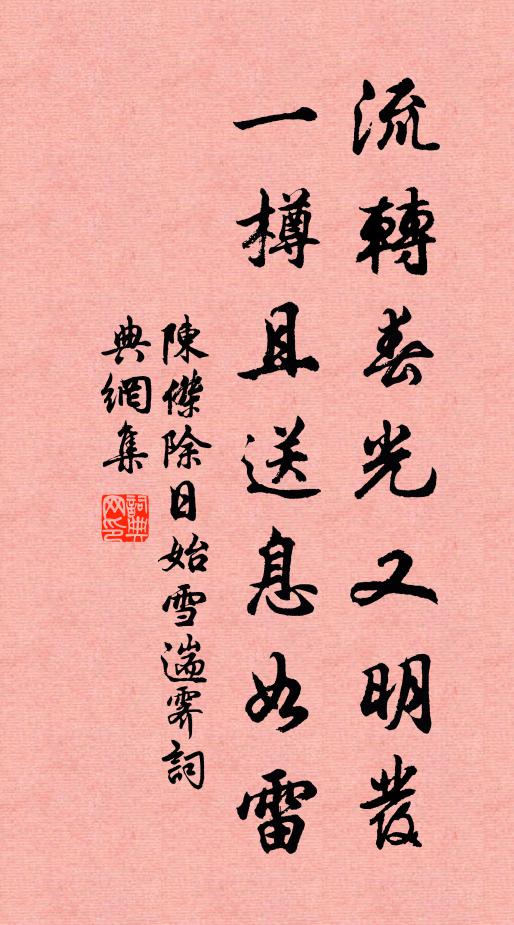 流轉春光又明發
一樽且送息如雷
陳傑除日始雪遄霽詞
典網集
詞典网印